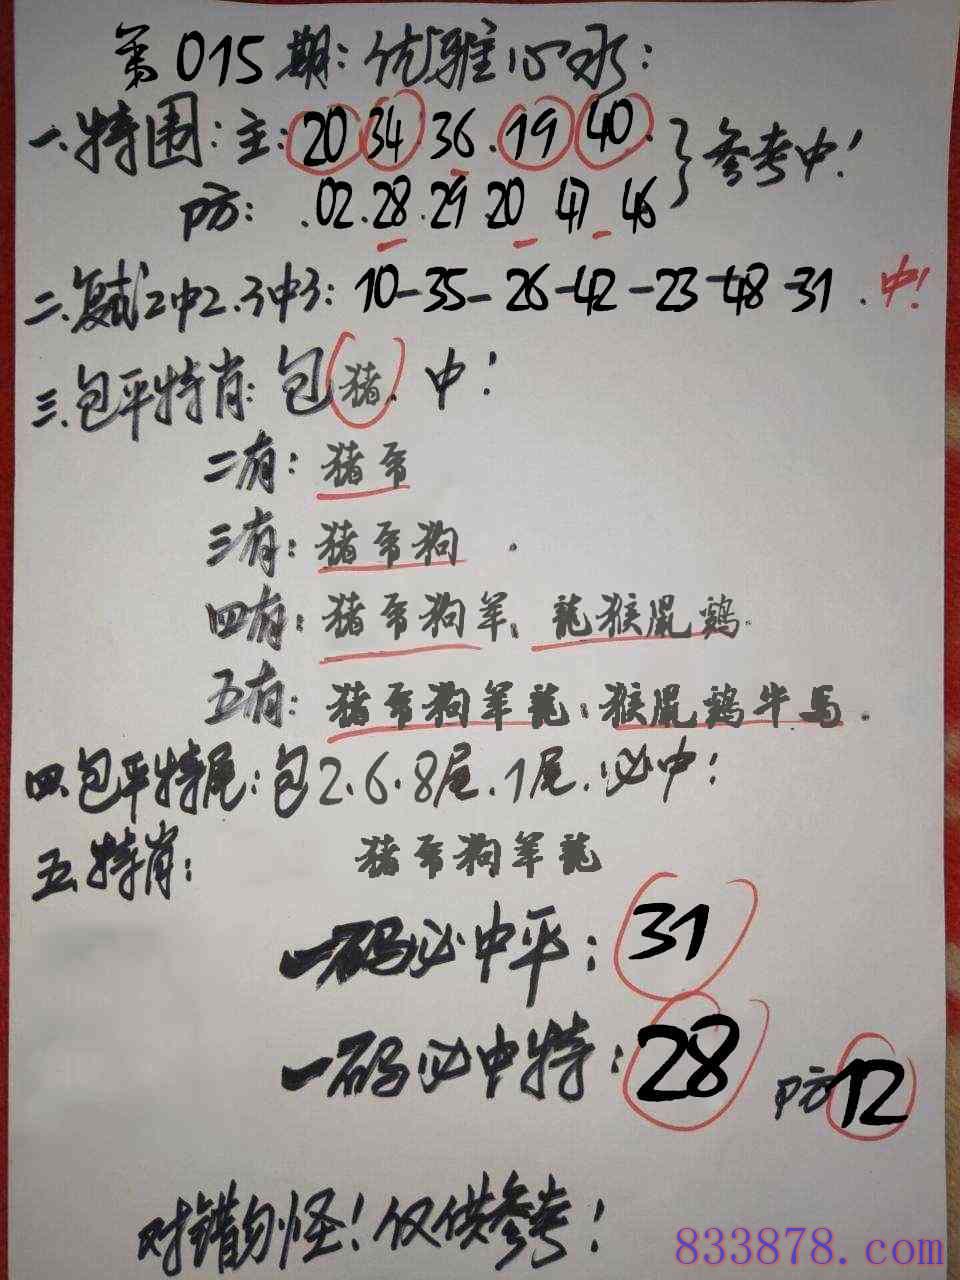 第015期:优雅心水:
一.特围:主:20 34.36.19 40. }参考中!
防:.02.28.29.20.47 46
二.复试2中2.3中3:10-35-26-42-23-48-31.中!
三.包平特肖:包猪.中!
二有:猪虎
三有:猪虎狗.
四有:猪虎狗羊、龍猴鼠鷄.
五有:猪虎狗羊龍:猴鼠鷄牛马.
四.包平特尾:包2.6.8尾.1尾.必中!
五.特肖:猪虎狗羊龍
一码必中平:31
一码必中特:28 防12
对错勿怪!仅供参考!
833878.com